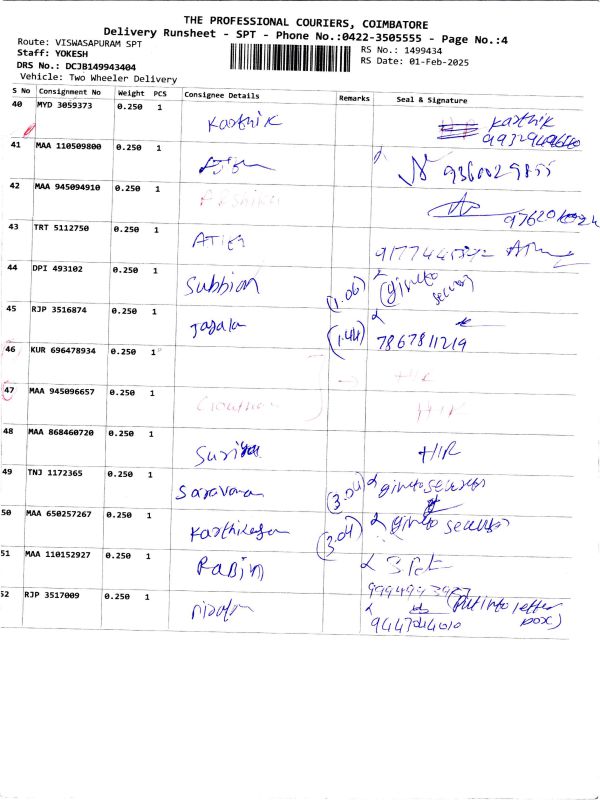 THE PROFESSIONAL COURIERS, COIMBATORE
Delivery Runsheet - SPT - Phone No.:0422-3505555 - Page No.:4
Route: VISWASAPURAM SPT
Staff: YOKESH
DRS No.: DCJB149943404
Vehicle: Two Wheeler Delivery
RS No.: 1499434
RS Date: 01-Feb-2025
S No Consignment No Weight PCS Consignee Details Remarks Seal & Signature
40 MYD 3059373 0.250 1 Karthik Karthik
41 MAA 110509800 0.250 1 9360029855
42 MAA 945094910 0.250 1
43 TRT 5112750 0.250 1
44 DPI 493102 0.250 1 Subbian (1.06)
45 RJP 3516874 0.250 1 (1.44) 7867811219
46 KUR 696478934 0.250 1 HIR
47 MAA 945096657 0.250 1 HIR
48 MAA 868460720 0.250 1 Suriya HIR
49 TNJ 1172365 0.250 1 Saravana (3.04)
50 MAA 650257267 0.250 1 Karthikesan (3.04)
51 MAA 110152927 0.250 1 Rabin
52 RJP 3517009 0.250 1 (Put into letter
9447044010 box)